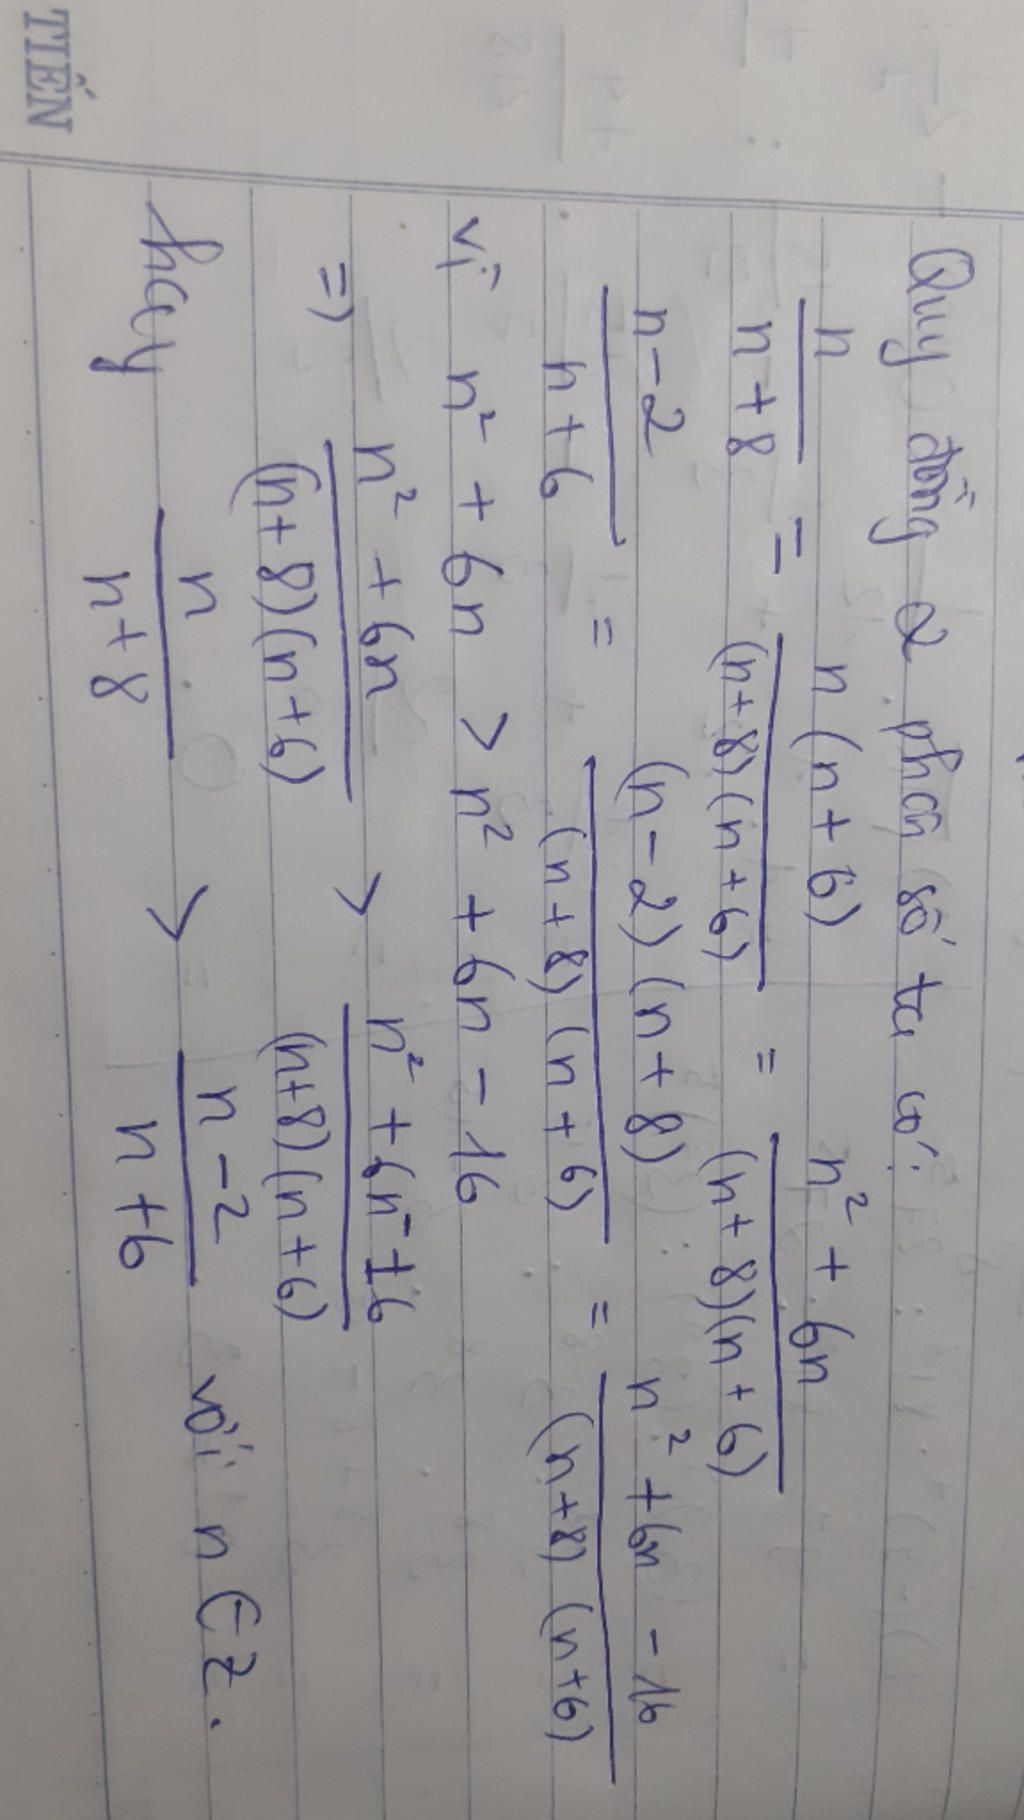 TIẾN
Quy đồng 2 phân số ta có:
n/(n+8) = n(n+6)/((n+8)(n+6)) = (n² + 6n)/((n+8)(n+6))
(n-2)/(n+6) = ((n-2)(n+8))/((n+8)(n+6)) = (n² + 6n - 16)/((n+8)(n+6))
vì n² + 6n > n² + 6n - 16
=> (n² + 6n)/((n+8)(n+6)) > (n² + 6n - 16)/((n+8)(n+6))
hay n/(n+8) > (n-2)/(n+6) với n ∈ Z.